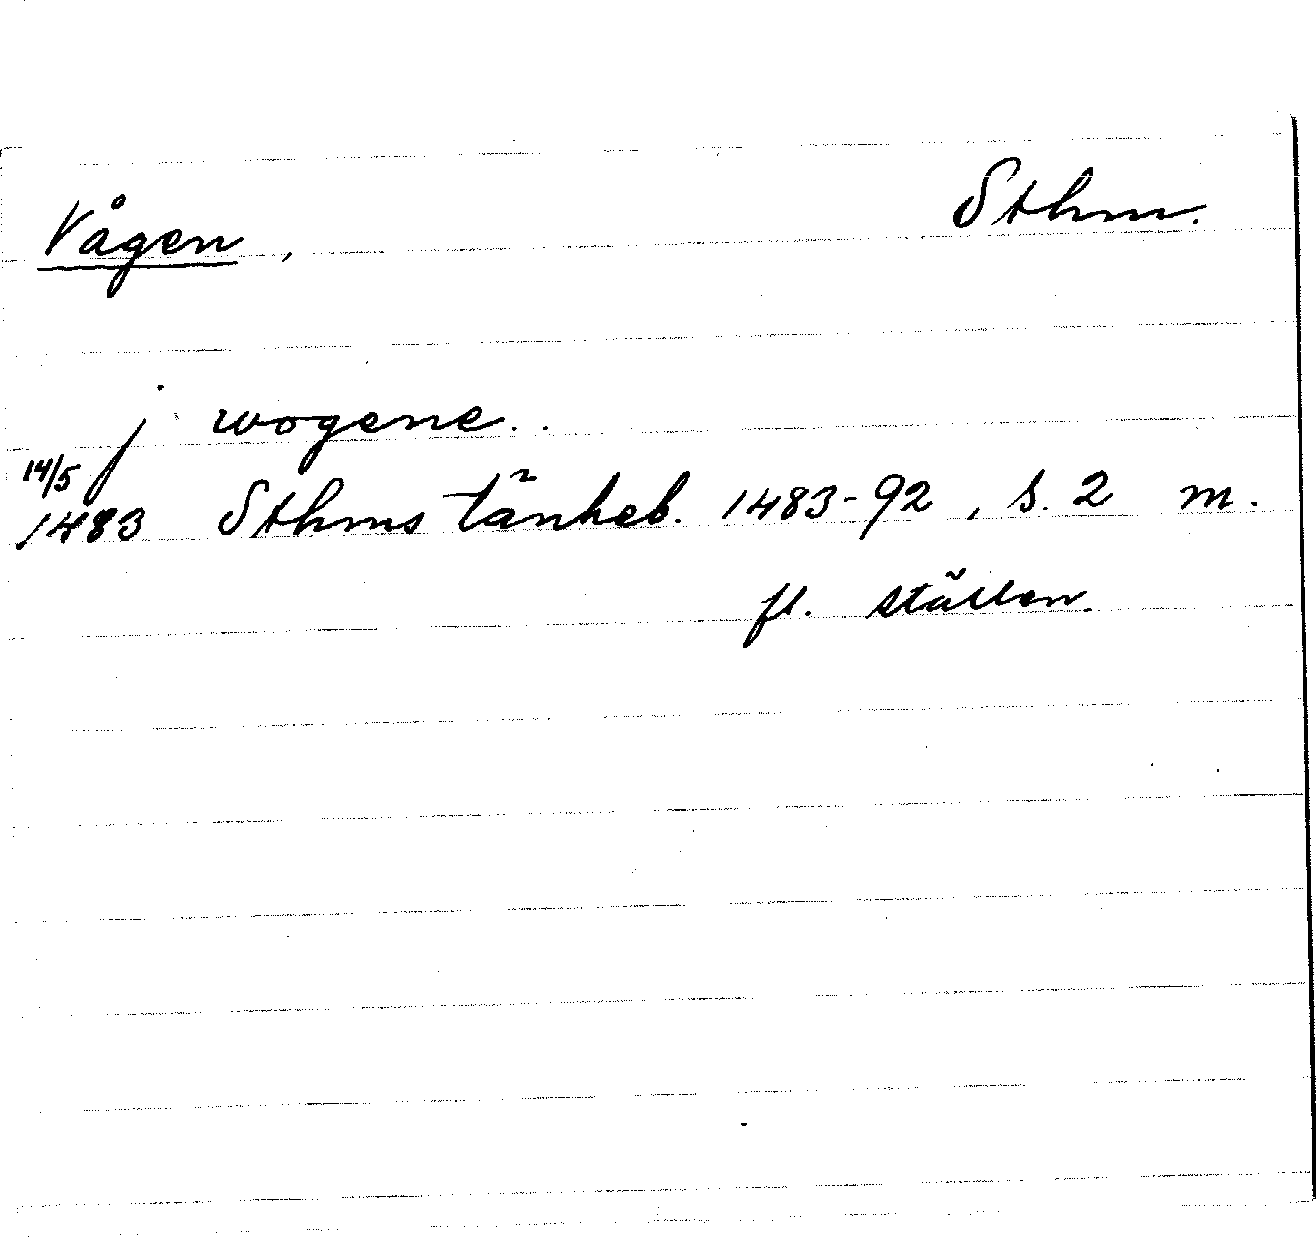 Vågen, Sthm.
j wogene..
14/5 1483 Sthms tänkeb. 1483-92, s. 2 m.
fl. ställen.